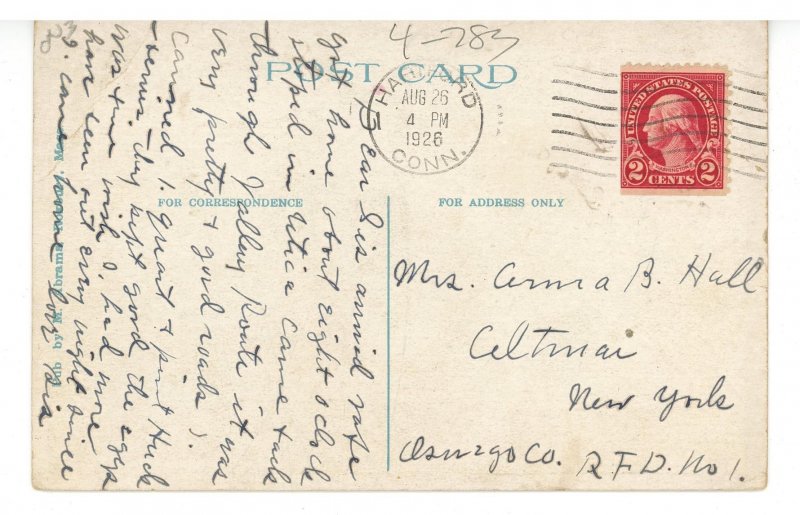 4-783
POST CARD
HARTFORD
AUG 26
4 PM
1926
CONN.
UNITED STATES POSTAGE
WASHINGTON
2 CENTS 2
FOR CORRESPONDENCE
FOR ADDRESS ONLY
Dear Sis arrived safe
got home about eight o'clock
stoped in Utica came back
through valley Route it was
very pretty & good roads).
Canned 1 quart & pint Huck
-berries. They kept good the eggs
was fine wish I had more
have been out every night since
I came home love Sis
Mrs. Anna B. Hall
Altmar
New York
Oswego Co. R.F.D. No 1.
Pub by M. Abrams